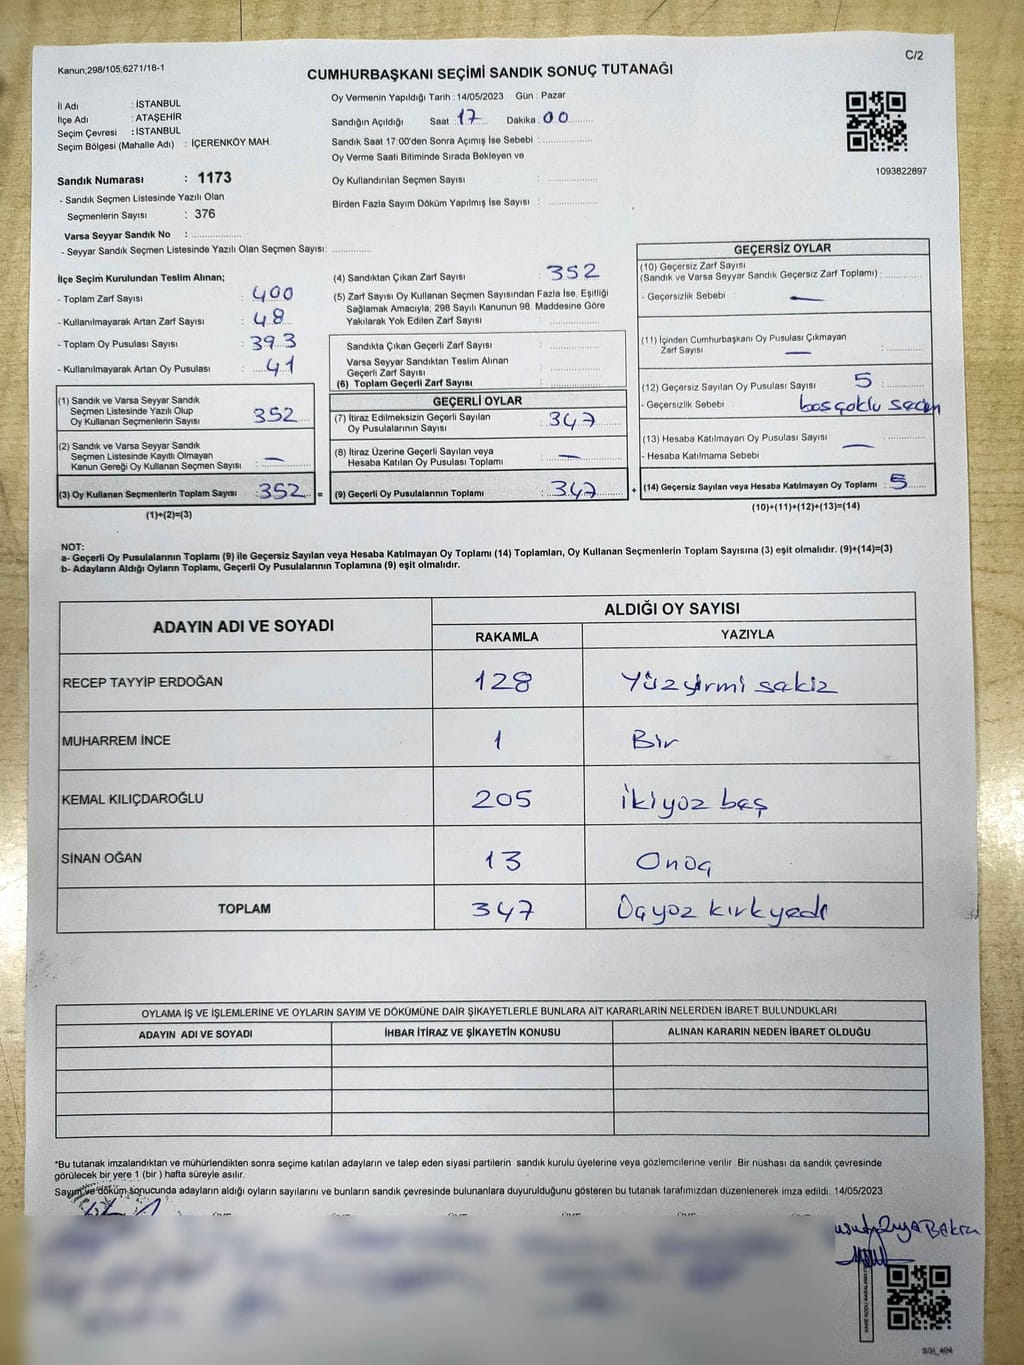 Kanun;298/105;6271/18-1
C/2
CUMHURBAŞKANI SEÇİMİ SANDIK SONUÇ TUTANAĞI
İl Adı : İSTANBUL
İlçe Adı : ATAŞEHİR
Seçim Çevresi : İSTANBUL
Seçim Bölgesi (Mahalle Adı) : İÇERENKÖY MAH.
Sandık Numarası : 1173
- Sandık Seçmen Listesinde Yazılı Olan
Seçmenlerin Sayısı : 376
Varsa Seyyar Sandık No : ..................
- Seyyar Sandık Seçmen Listesinde Yazılı Olan Seçmen Sayısı: ..............
Oy Vermenin Yapıldığı Tarih :14/05/2023 Gün : Pazar
Sandığın Açıldığı Saat :17 Dakika :00
Sandık Saat 17:00'den Sonra Açımış İse Sebebi : ..................
Oy Verme Saati Bitiminde Sırada Bekleyen ve
Oy Kullandırılan Seçmen Sayısı : ..................
Birden Fazla Sayım Döküm Yapılmış İse Sayısı : ..................
1093822897
İlçe Seçim Kurulundan Teslim Alınan;
- Toplam Zarf Sayısı : 400
- Kullanılmayarak Artan Zarf Sayısı : 48
- Toplam Oy Pusulası Sayısı : 393
- Kullanılmayarak Artan Oy Pusulası : 41
(1) Sandık ve Varsa Seyyar Sandık
Seçmen Listesinde Yazılı Olup
Oy Kullanan Seçmenlerin Sayısı : 352
(2) Sandık ve Varsa Seyyar Sandık
Seçmen Listesinde Kayıtlı Olmayan
Kanun Gereği Oy Kullanan Seçmen Sayısı : —
(3) Oy Kullanan Seçmenlerin Toplam Sayısı :352 =
(1)+(2)=(3)
(4) Sandıktan Çıkan Zarf Sayısı : 352
(5) Zarf Sayısı Oy Kullanan Seçmen Sayısından Fazla İse, Eşitliği
Sağlamak Amacıyla; 298 Sayılı Kanunun 98. Maddesine Göre
Yakılarak Yok Edilen Zarf Sayısı : ..................
Sandıkta Çıkan Geçerli Zarf Sayısı : ..................
Varsa Seyyar Sandıktan Teslim Alınan
Geçerli Zarf Sayısı : ..................
(6) Toplam Geçerli Zarf Sayısı : ..................
GEÇERLİ OYLAR
(7) İtiraz Edilmeksizin Geçerli Sayılan
Oy Pusulalarının Sayısı : 347
(8) İtiraz Üzerine Geçerli Sayılan veya
Hesaba Katılan Oy Pusulası Toplamı : —
(9) Geçerli Oy Pusulalarının Toplamı : 347 +
GEÇERSİZ OYLAR
(10) Geçersiz Zarf Sayısı
(Sandık ve Varsa Seyyar Sandık Geçersiz Zarf Toplamı) : ..............
- Geçersizlik Sebebi : —
(11) İçinden Cumhurbaşkanı Oy Pusulası Çıkmayan
Zarf Sayısı — : ..............
(12) Geçersiz Sayılan Oy Pusulası Sayısı 5 : ..............
- Geçersizlik Sebebi : boşçoklu seçen
(13) Hesaba Katılmayan Oy Pusulası Sayısı — : ..............
- Hesaba Katılmama Sebebi
(14) Geçersiz Sayılan veya Hesaba Katılmayan Oy Toplamı : 5
(10)+(11)+(12)+(13)=(14)
NOT:
a- Geçerli Oy Pusulalarının Toplamı (9) ile Geçersiz Sayılan veya Hesaba Katılmayan Oy Toplamı (14) Toplamları, Oy Kullanan Seçmenlerin Toplam Sayısına (3) eşit olmalıdır. (9)+(14)=(3)
b- Adayların Aldığı Oyların Toplamı, Geçerli Oy Pusulalarının Toplamına (9) eşit olmalıdır.
ADAYIN ADI VE SOYADI
ALDIĞI OY SAYISI
RAKAMLA YAZIYLA
RECEP TAYYİP ERDOĞAN 128 Yüzyirmi sekiz
MUHARREM İNCE 1 Bir
KEMAL KILIÇDAROĞLU 205 İkiyüz beş
SİNAN OĞAN 13 Onüç
TOPLAM 347 Üçyüz kırkyedi
OYLAMA İŞ VE İŞLEMLERİNE VE OYLARIN SAYIM VE DÖKÜMÜNE DAİR ŞİKAYETLERLE BUNLARA AİT KARARLARIN NELERDEN İBARET BULUNDUKLARI
ADAYIN ADI VE SOYADI İHBAR İTİRAZ VE ŞİKAYETİN KONUSU ALINAN KARARIN NEDEN İBARET OLDUĞU
*Bu tutanak imzalandıktan ve mühürlendikten sonra seçime katılan adayların ve talep eden siyasi partilerin sandık kurulu üyelerine veya gözlemcilerine verilir .Bir nüshası da sandık çevresinde
görülecek bir yere 1 (bir ) hafta süreyle asılır.
Sayım ve döküm sonucunda adayların aldığı oyların sayılarını ve bunların sandık çevresinde bulunanlara duyurulduğunu gösteren bu tutanak tarafımızdan düzenlenerek imza edildi. 14/05/2023